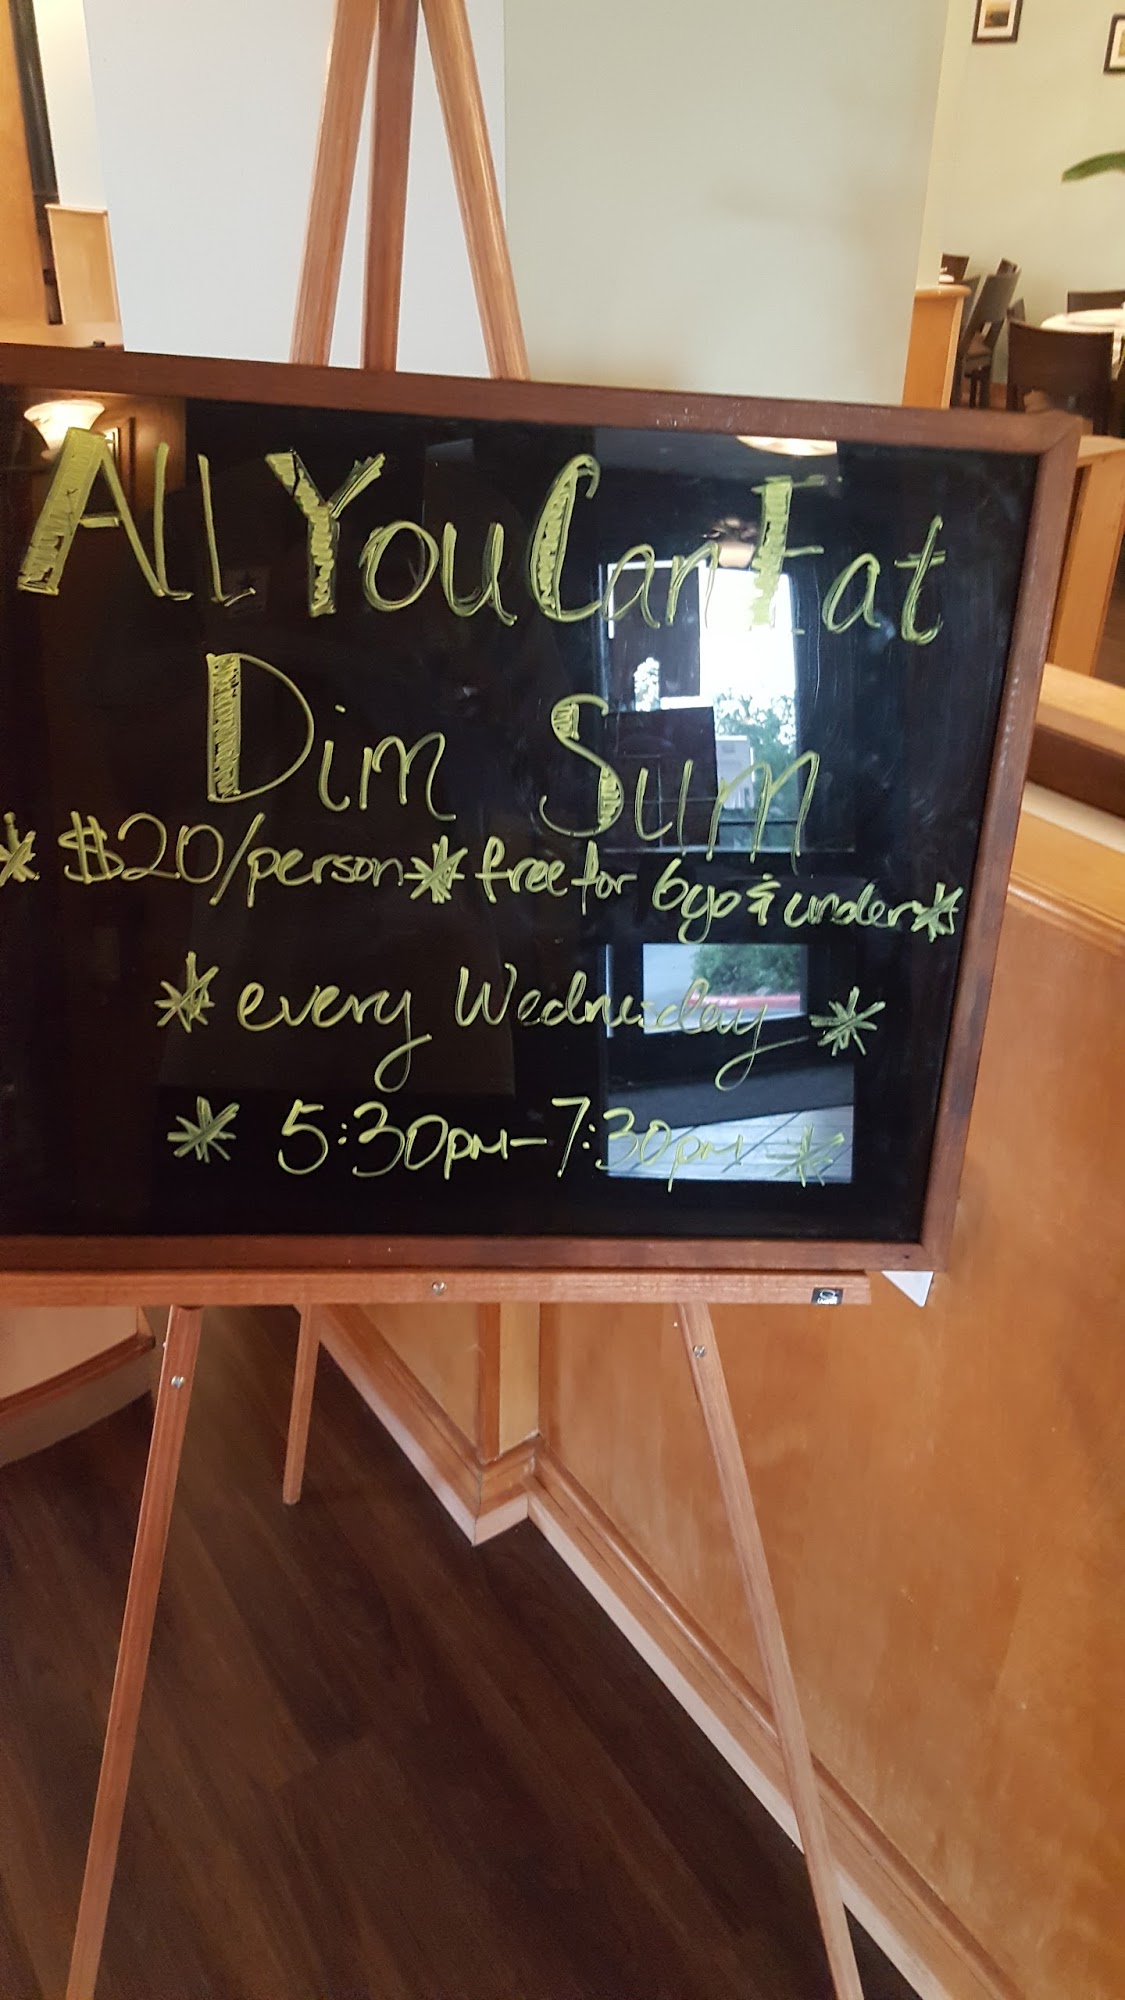 All You Can Eat
Dim Sum
* $20/person * free for 6yo & under *
* every Wednesday *
* 5:30pm - 7:30pm *